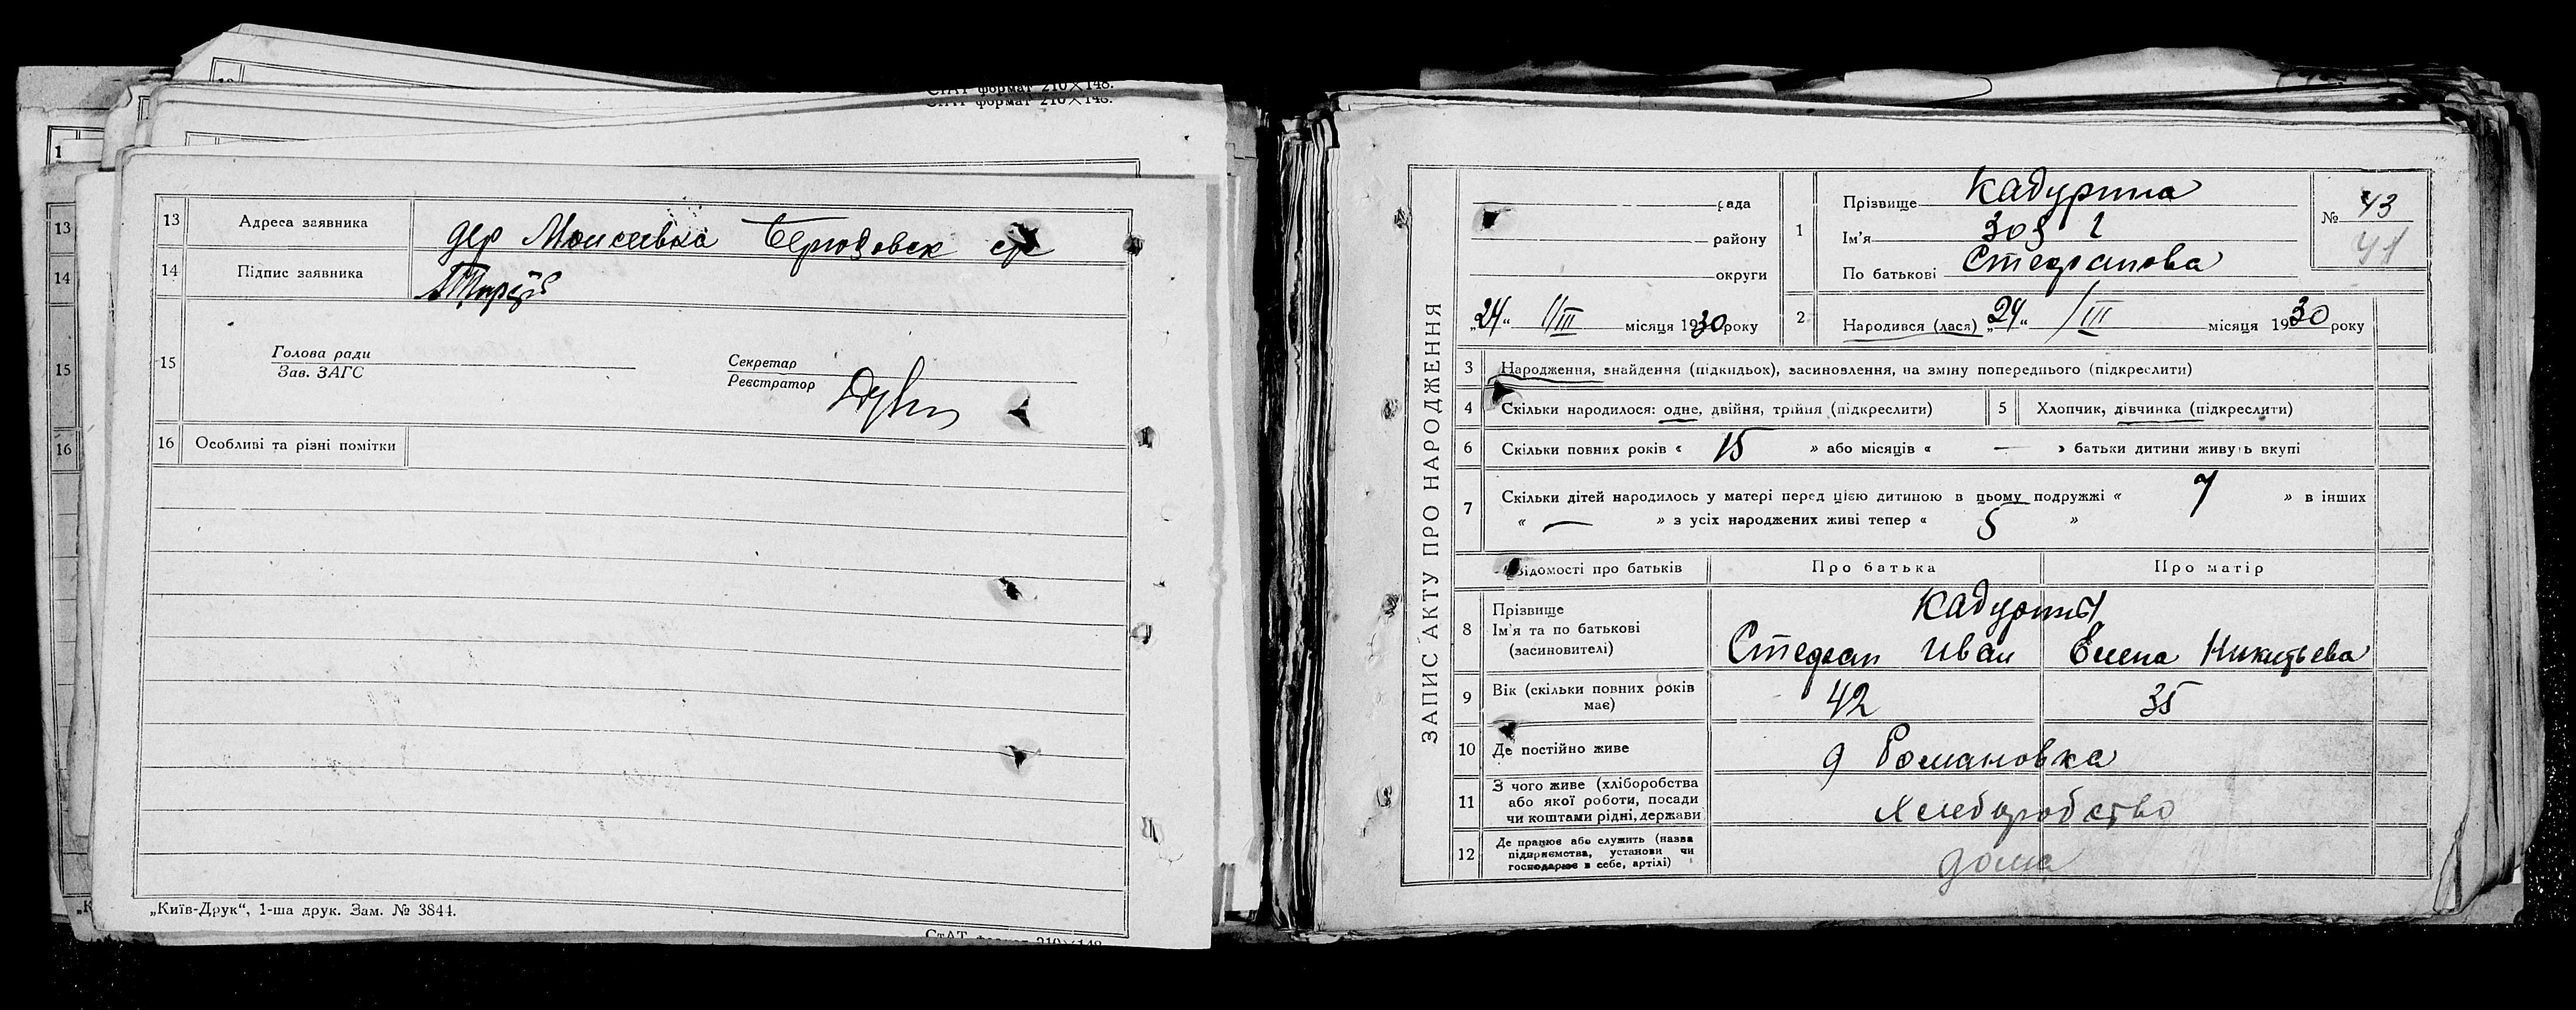 СтАТ формат 210×148.
СтАТ формат 210×148.
1
13
14
15
16
13 Адреса заявника дер Моисеевка
14 Підпис заявника
15 Голова ради
Зав. ЗАГС
Секретар
Реєстратор
16 Особливі та різні помітки
„Київ-Друк“, 1-ша друк. Зам. № 3844.
СтАТ формат 210×148
ЗАПИС АКТУ ПРО НАРОДЖЕННЯ
рада
району
округи
„24“ III місяця 1930 року
1 Прізвище Кадурина
Ім'я Зоя
По батькові Стефанова
№ 43
41
2 Народився (лася) „24“ III місяця 1930 року
3 Народження, знайдення (підкидьок), засиновлення, на зміну попереднього (підкреслити)
4 Скільки народилося: одне, двійня, трійня (підкреслити)
5 Хлопчик, дівчинка (підкреслити)
6 Скільки повних років « 15 » або місяців « — » батьки дитини живуть вкупі
7 Скільки дітей народилось у матері перед цією дитиною в цьому подружжі « 7 » в інших
« — » з усіх народжених живі тепер « 5 »
Відомості про батьків Про батька Про матір
8 Прізвище
Ім'я та по батькові
(засиновителі)
Кадурины
Стефан Иван Елена Никитьева
9 Вік (скільки повних років
має) 42 35
10 Де постійно живе д Романовка
11 З чого живе (хліборобства
або якої роботи, посади
чи коштами рідні, держави
Хлеборобство
12 Де працює або служить (назва
підприємства, установи чи
господарює в себе, артілі)
дома